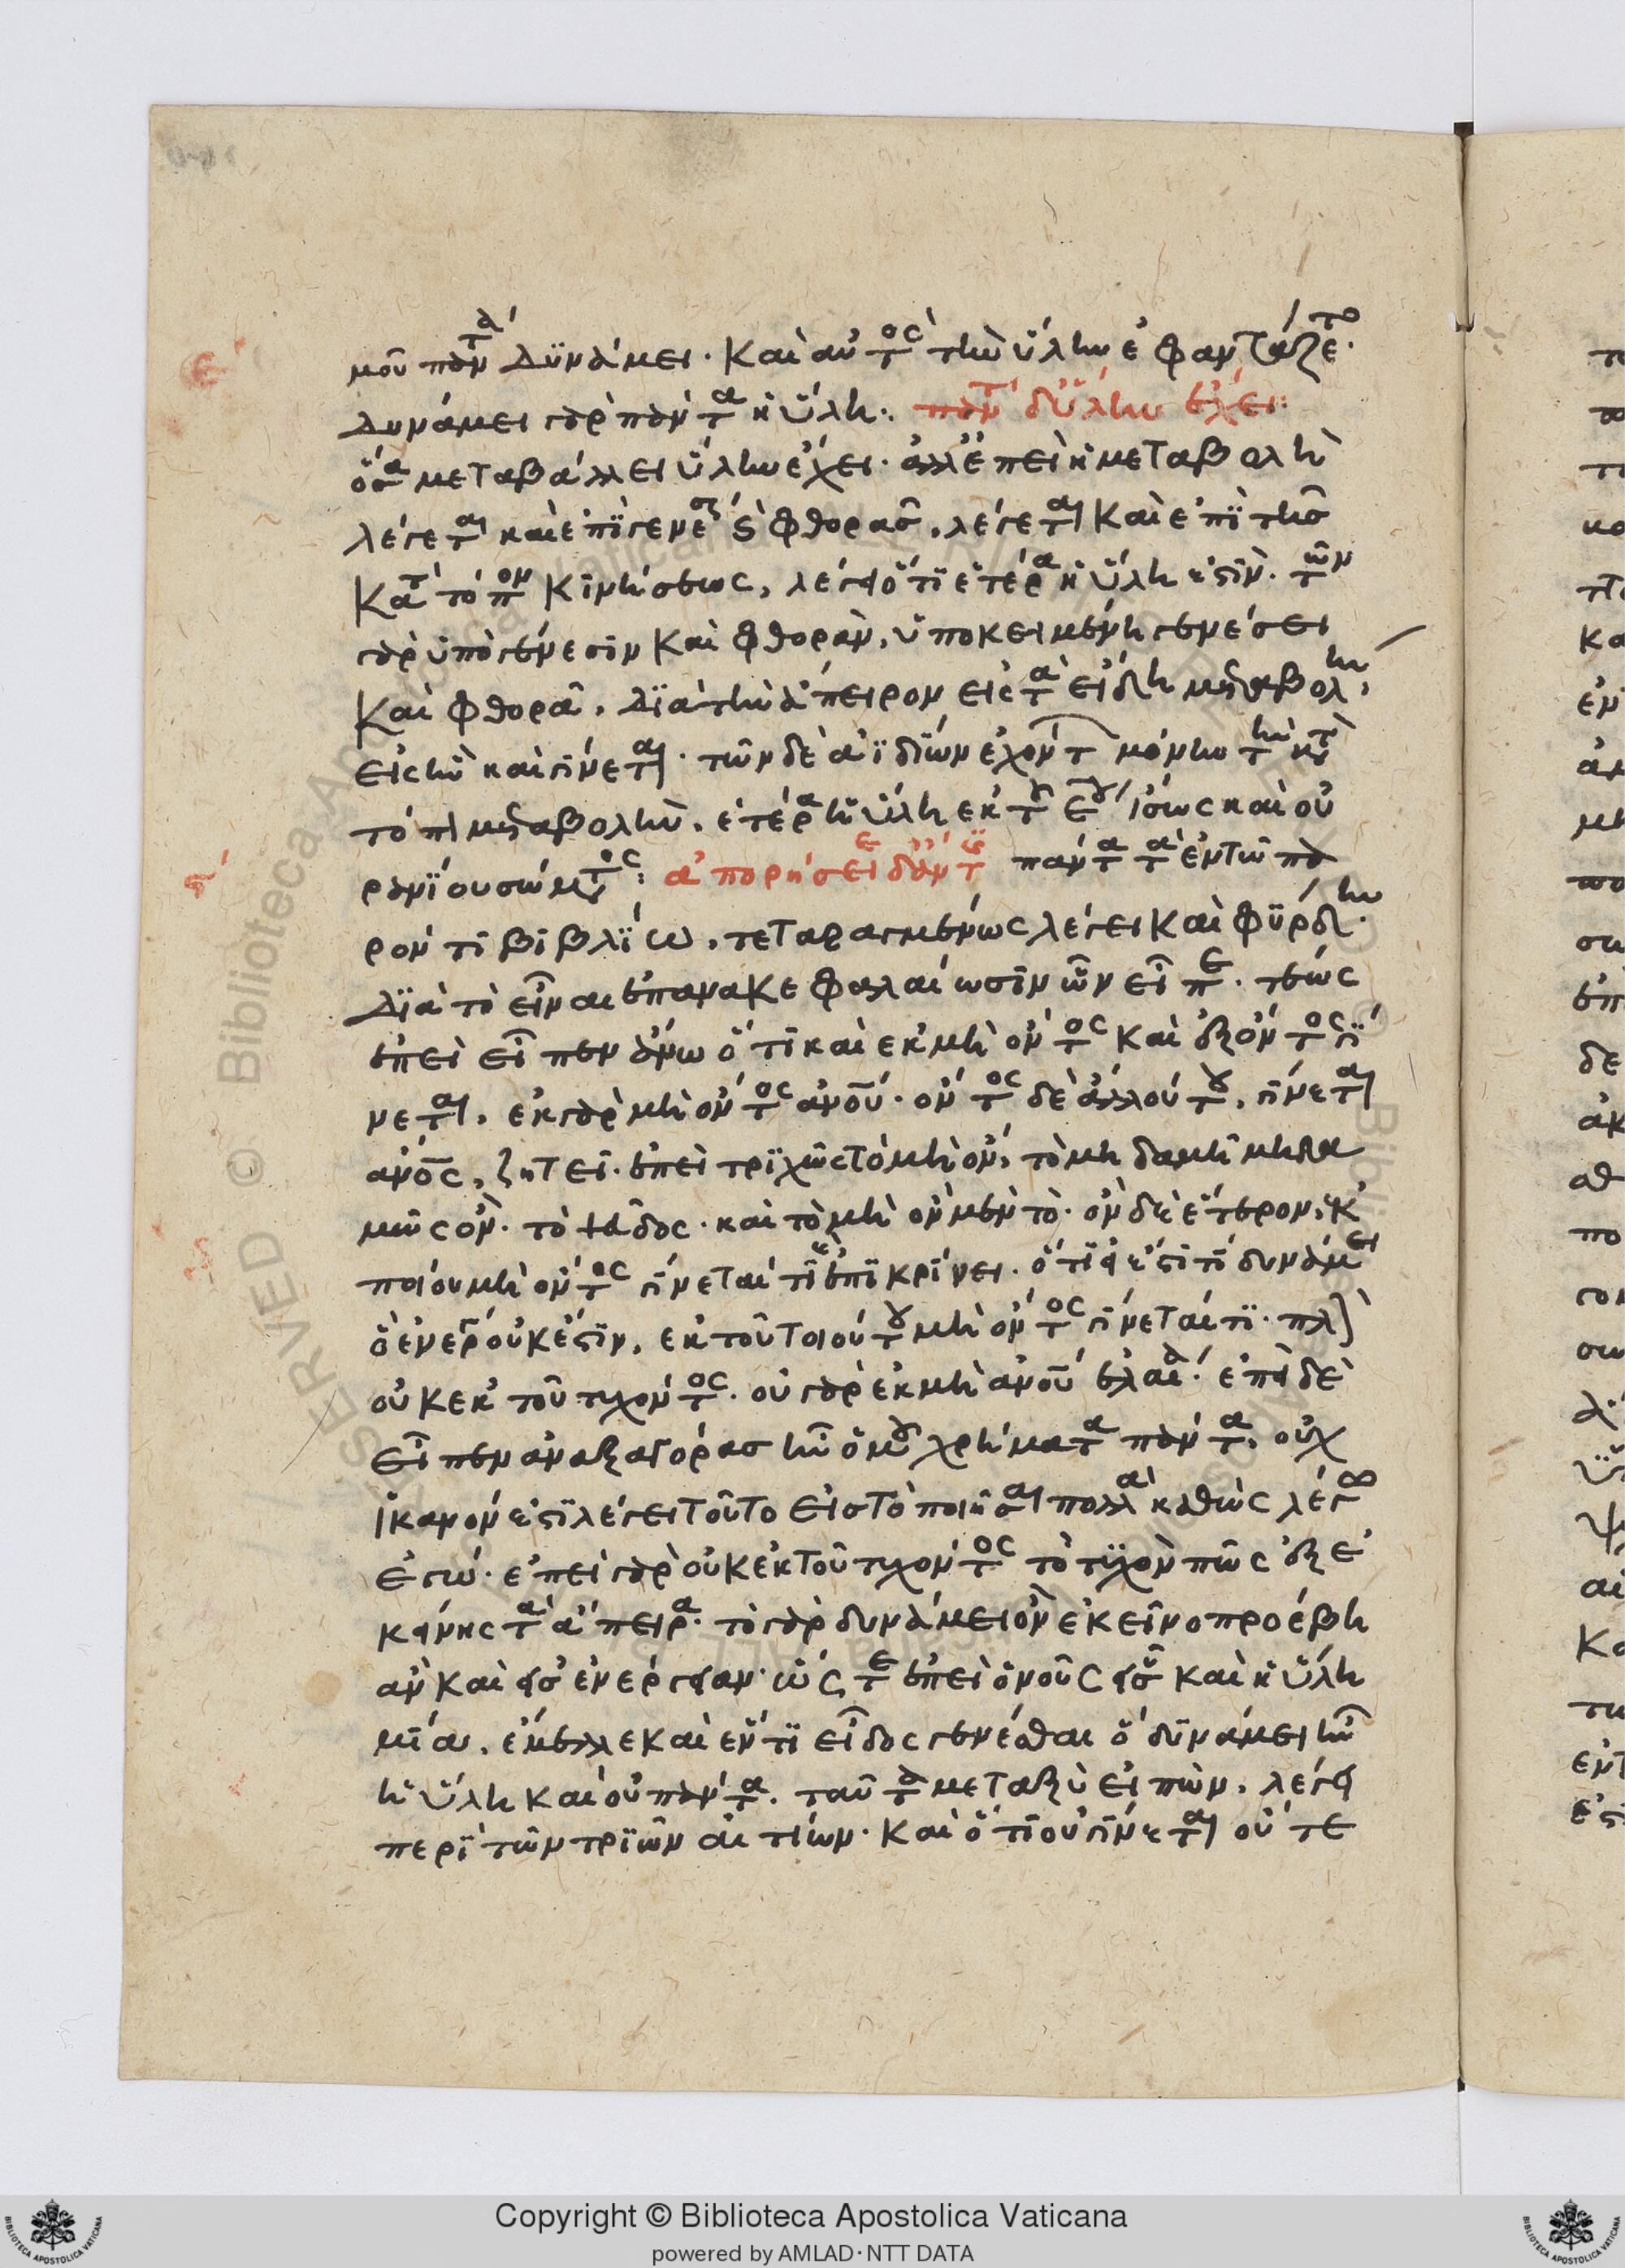 μοῦ πάντα δυνάμει. καὶ αὐτὸς τὴν ὕλην ἐφαντάζετο.
δυνάμει γὰρ πάντα ἡ ὕλη. πάντα δ' ὕλην ἔχει
ὅσα μεταβάλλει ὕλην ἔχει. ἀλλ' ἐπεὶ ἡ μεταβολὴ
λέγεται καὶ ἐπὶ γενέσεως καὶ φθορᾶς, λέγεται καὶ ἐπὶ τῆς
κατὰ τόπον κινήσεως, λέγω ὅτι ἑτέρα ἡ ὕλη ἐστὶν. τῶν
γὰρ ὑπὸ γένεσιν καὶ φθορὰν, ὑποκειμένη γενέσει
καὶ φθορᾶ. διὰ τὴν ἄπειρον εἰς τὰ εἴδη μεταβολήν,
εἰς ἣν καὶ γίνεται. τῶν δὲ ἀϊδίων ἐχόντων μόνην τὴν κατὰ
τόπον μεταβολὴν, ἑτέρα ἡ ὕλη ἐκ τούτου ἴσως καὶ οὐ
ρανίου σώματος: ἀπορήσειε δ' ἄν τις πάντα τὰ ἐν τῶ πα
ρόντι βιβλίω, τεταραγμένως λέγει καὶ φύρδην.
διὰ τὸ εἶναι ἐπανακεφαλαίωσιν ὧν εἶπε. τέως
ἐπεὶ εἶπεν ἄνω ὅτι καὶ ἐκ μὴ ὄντος καὶ ἐξ ὄντος γί
νεται, ἐκ γὰρ μὴ ὄντος ἀνοῦ. ὄντος δὲ ἄλλου του, γίνεται
ἀνος, ζητεῖ. ἐπεὶ τριχῶς τὸ μὴ ὄν, τὸ μηδαμῆ μηδα
μῶς ὄν. τὸ ψεῦδος. καὶ τὸ μὴ ὂν μέν τὸ. ὂν δὲ ἕτερον, ἐκ
ποίου μὴ ὄντος γίνεταί τι ἐπικρίνει. ὅτι ὃ ἐστί τι δυνάμει
ὃ ἐνερ οὐκ ἔστιν, ἐκ τοῦ τοιούτου μὴ ὄντος γίνεταί τι. πλὴν
οὐκ ἐκ τοῦ τυχόντος. οὐ γὰρ ἐκ μὴ ἀνοῦ ἐλαία. ἐπεὶ δὲ
εἶπεν ἀναξαγόρας ἦν ὁμοῦ χρήματα πάντα, οὐχ
ἱκανόν ἐστι λέγει τοῦτο εἰς τὸ ποιῆσαι πολλὰ καθὼς λέγω
ἐγώ. ἐπεὶ γὰρ οὐκ ἐκ τοῦ τυχόντος τὸ τυχὸν πῶς ἐξ ἐ
κείνης τὰ ἄπειρα. τὸ γὰρ δυνάμει ὂν ἐκεῖνο προέβη
ἂν καὶ εἰς ἐνέργειαν. ὥστε ἐπεὶ ὁ νοῦς εἷς καὶ ἡ ὕλη
μία, ἔμελλε καὶ ἕν τι εἶδος γενέσθαι ὃ δυνάμει ἦν
ἡ ὕλη καὶ οὐ πάντα. ταῦτα μεταξὺ εἰπὼν, λέγει
περὶ τῶν τριῶν αἰτίων. καὶ ὅτι οὐ γίνεται οὔτε